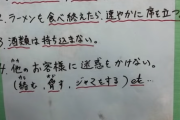 2. ラーメンを食べ終えたら、速やかに席を立つ
3. 酒類は持ち込まない。
4. 他のお客様に迷惑をかけない。
ジャマをする)etc…